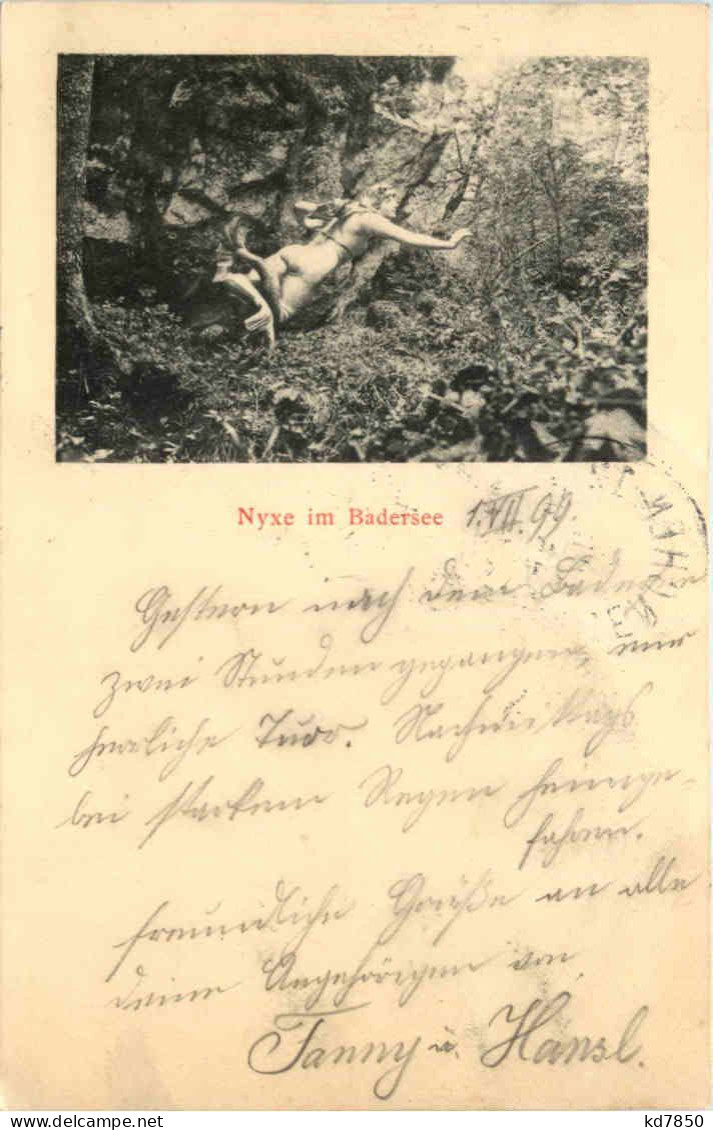 Nyxe im Badersee 1.VII.99.
Gestern nach dem Badersee
zwei Stunden gegangen, eine
herrliche Tour. Nachmittags
bei starkem Regen heimge-
fahren.
freundliche Grüße an alle
deine Angehörigen von
Fanny u. Hansl.
kd7850